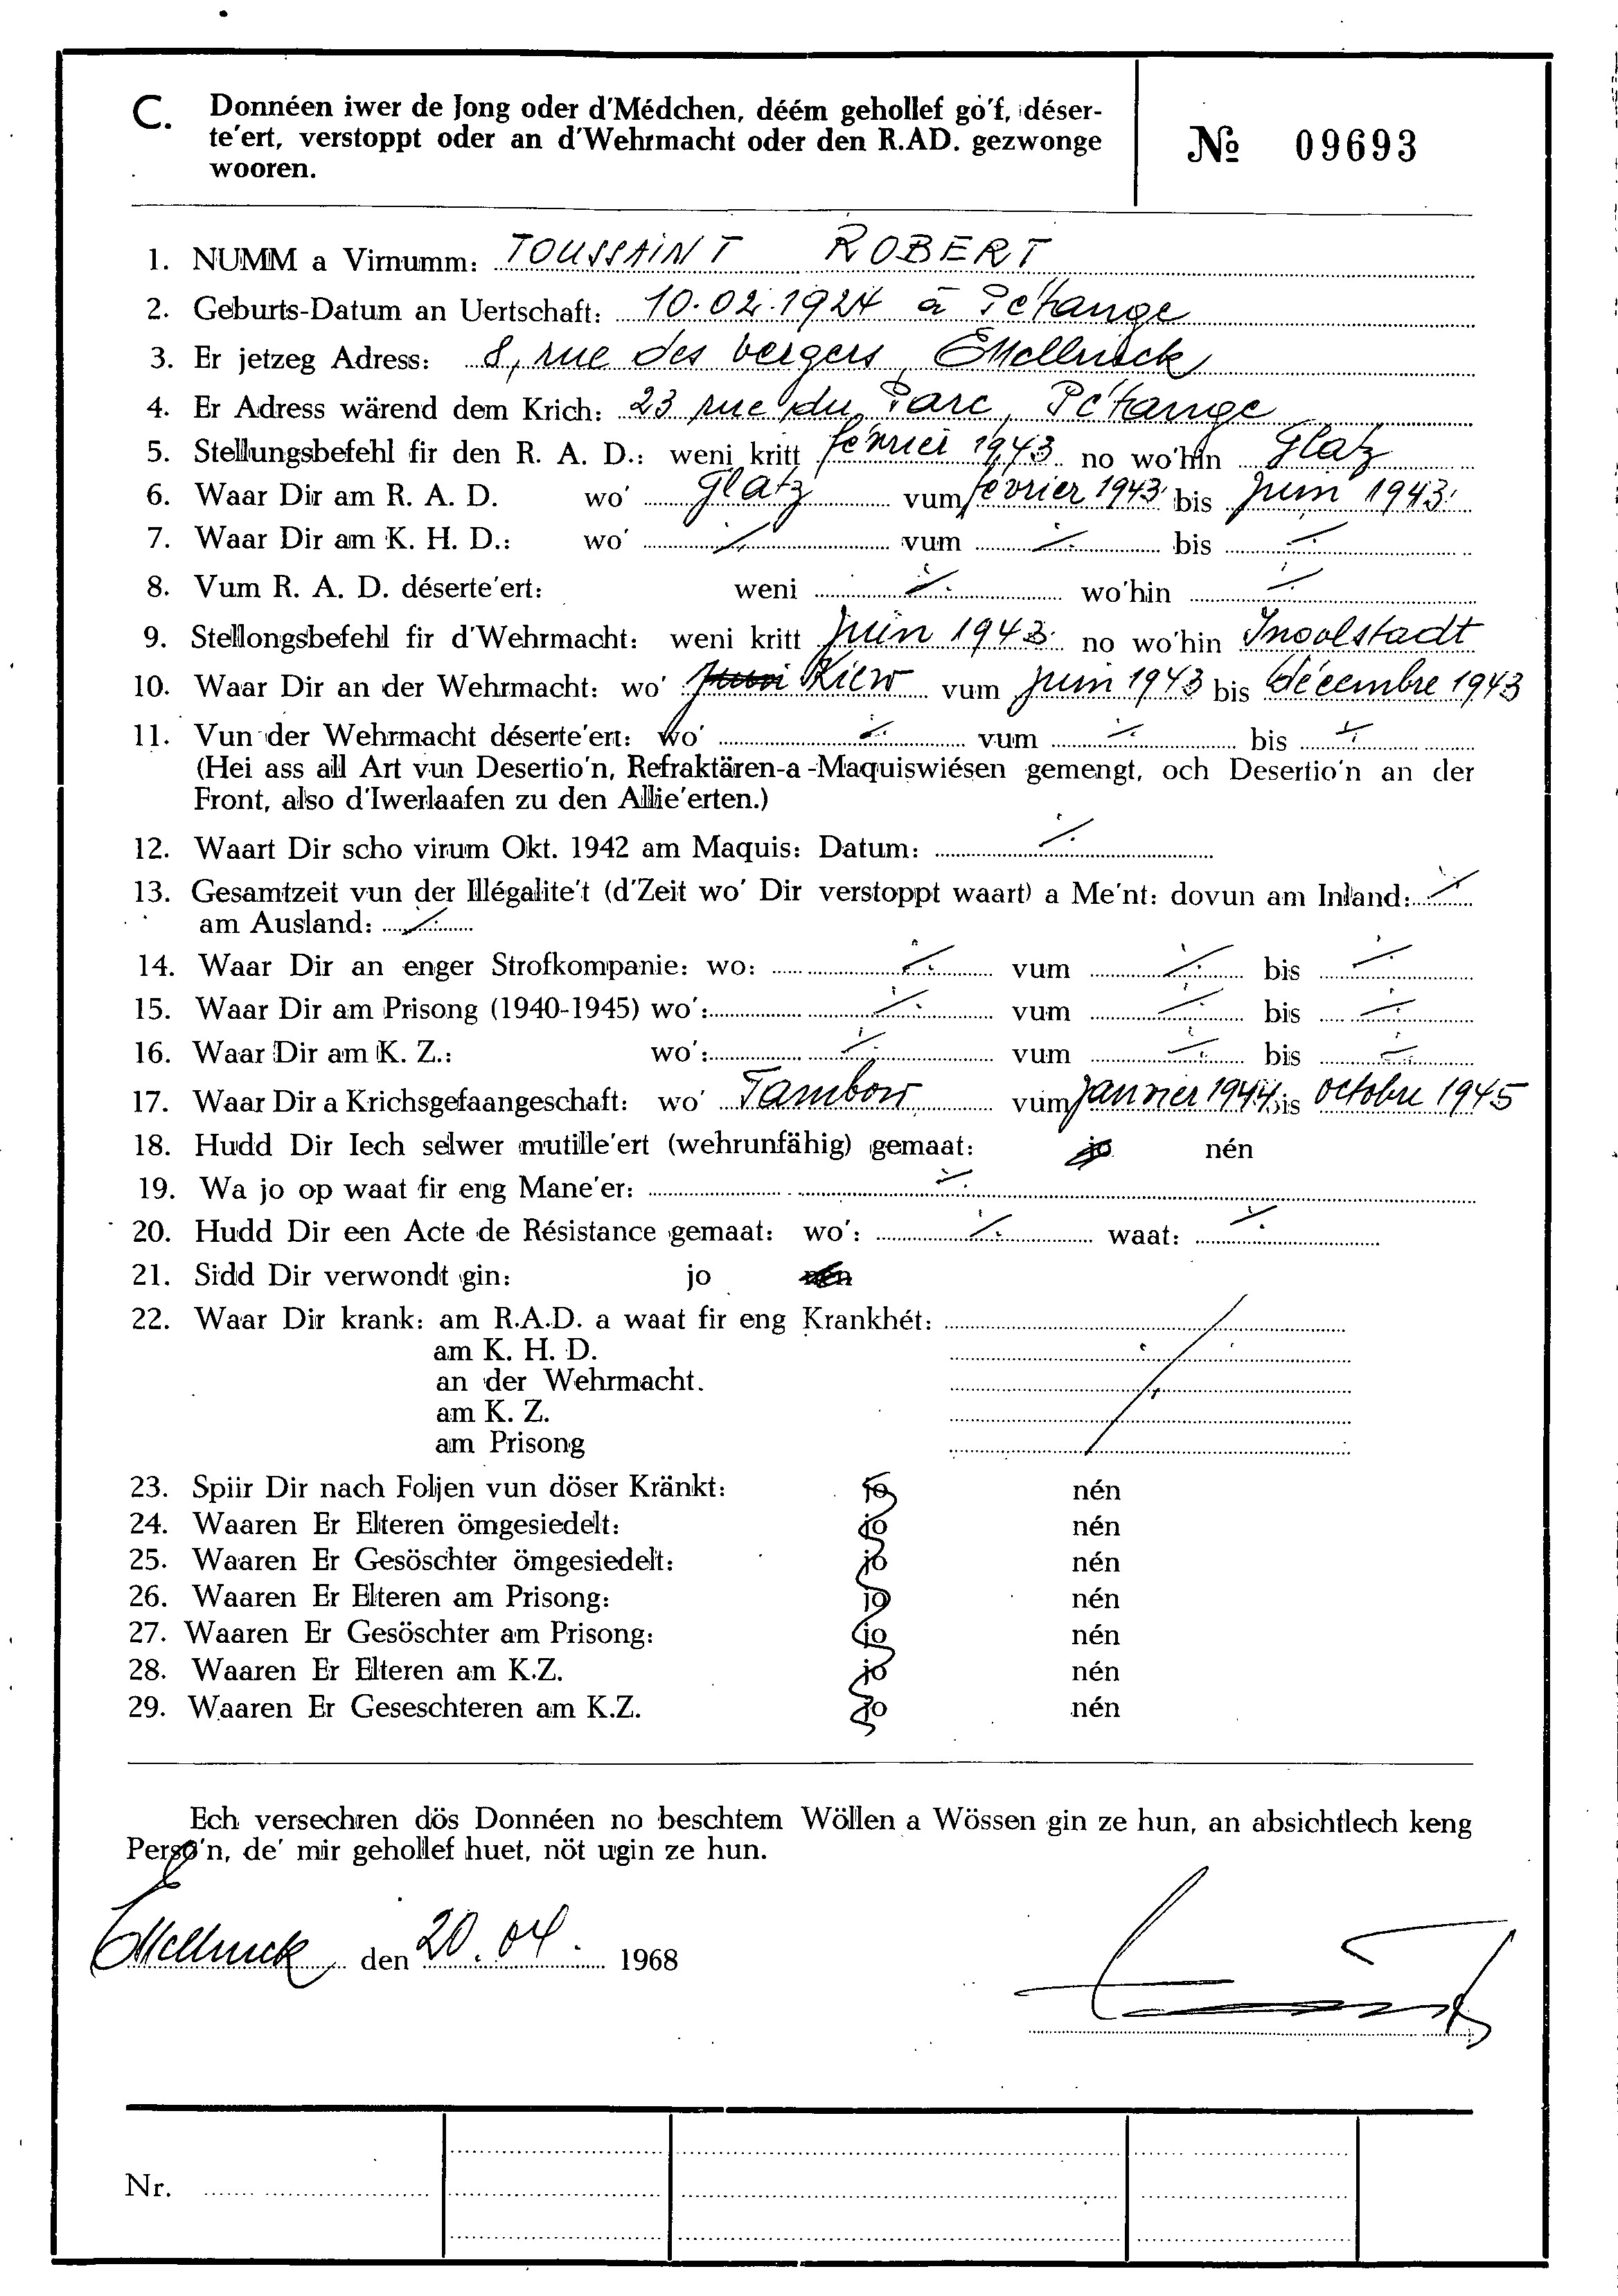 C. Donnéen iwer de Jong oder d'Médchen, déém gehollef go'f, déser-
te'ert, verstoppt oder an d'Wehrmacht oder den R.AD. gezwonge
wooren.
№ 09693
1. NUMM a Virnumm: TOUSSAINT ROBERT
2. Geburts-Datum an Uertschaft: 10.02.1924 à Pétange
3. Er jetzeg Adress: 8, rue des bergers, Ettelbruck
4. Er Adress wärend dem Krich: 23 rue du Parc, Pétange
5. Stellungsbefehl fir den R. A. D.: weni kritt février 1943 no wo'hin Glatz
6. Waar Dir am R. A. D. wo' Glatz vum février 1943 bis juin 1943
7. Waar Dir am K. H. D.: wo' ./. vum ./. bis ./.
8. Vum R. A. D. déserte'ert: weni ./. wo'hin ./.
9. Stellongsbefehl fir d'Wehrmacht: weni kritt juin 1943 no wo'hin Ingolstadt
10. Waar Dir an der Wehrmacht: wo' Kiew vum juin 1943 bis décembre 1943
11. Vun der Wehrmacht déserte'ert: wo' ./. vum ./. bis ./.
(Hei ass all Art vun Desertio'n, Refraktären-a-Maquiswiésen gemengt, och Desertio'n an der
Front, also d'Iwerlaafen zu den Allie'erten.)
12. Waart Dir scho virum Okt. 1942 am Maquis: Datum: ./.
13. Gesamtzeit vun der Illégalite't (d'Zeit wo' Dir verstoppt waart) a Me'nt: dovun am Inland: ./.
am Ausland: ./.
14. Waar Dir an enger Strofkompanie: wo: ./. vum ./. bis ./.
15. Waar Dir am Prisong (1940-1945) wo': ./. vum ./. bis ./.
16. Waar Dir am K. Z.: wo': ./. vum ./. bis ./.
17. Waar Dir a Krichsgefaangeschaft: wo' Tambow vum janvier 1944 bis octobre 1945
18. Hudd Dir Iech selwer mutille'ert (wehrunfähig) gemaat: jo nén
19. Wa jo op waat fir eng Mane'er: ./.
20. Hudd Dir een Acte de Résistance gemaat: wo': ./. waat: ./.
21. Sidd Dir verwondt gin: jo nén
22. Waar Dir krank: am R.A.D. a waat fir eng Krankhét: ./.
am K. H. D.
an der Wehrmacht.
am K. Z.
am Prisong
23. Spiir Dir nach Foljen vun döser Kränkt: jo nén
24. Waaren Er Elteren ömgesiedelt: jo nén
25. Waaren Er Gesöschter ömgesiedelt: jo nén
26. Waaren Er Elteren am Prisong: jo nén
27. Waaren Er Gesöschter am Prisong: jo nén
28. Waaren Er Elteren am K.Z. jo nén
29. Waaren Er Geseschteren am K.Z. jo nén
Ech versechren dös Donnéen no beschtem Wöllen a Wössen gin ze hun, an absichtlech keng
Perso'n, de' mir gehollef huet, nöt ugin ze hun.
Ettelbruck den 20.04. 1968
Nr.